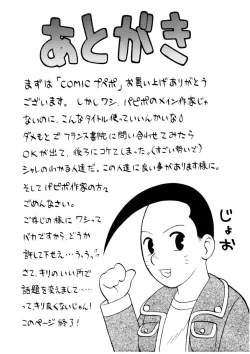 あとがき
まずは「COMICプペポ」お買い上げありがとう
ございます。しかしワシ、パピポのメイン作家じゃ
ないのに、こんなタイトル使っていいんかいな。
ダメもとでフランス書院に問い合わせてみたら
OKが出て、後ろにコケてしまった。(すごい勢いで)
シャレのわかる人達だ。この人達に良い事があります様に。
そしてパピポ作家の方々
ごめんなさい。
ご存じの様にワシって
バカですから、どうか
許して下せえ…うっう。
さて、キリのいい所で
話題を変えまして……
って、キリ良くないじゃん!
このページ終了!
じょお